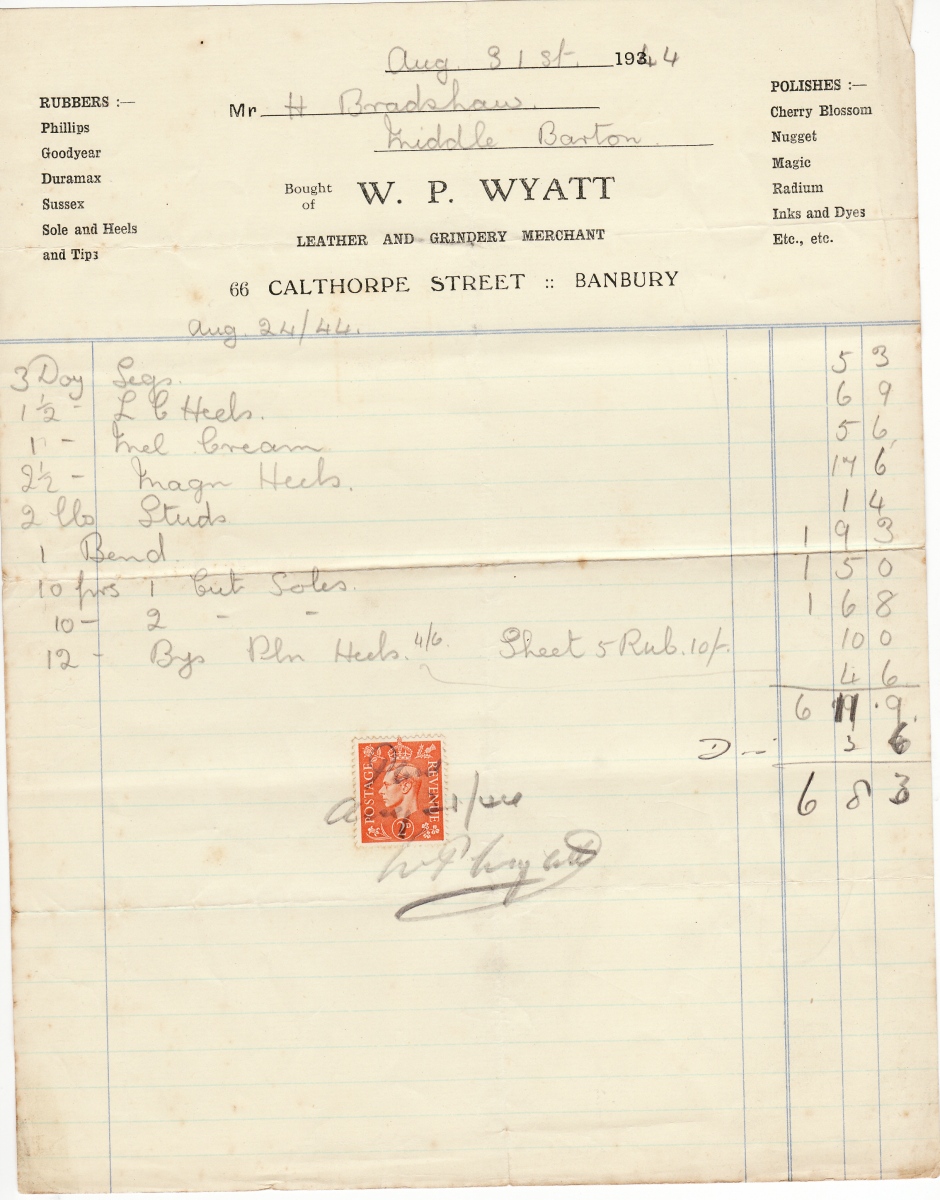 Aug. 31st. 1944
Mr H Bradshaw.
Middle Barton.
RUBBERS :—
Phillips
Goodyear
Duramax
Sussex
Sole and Heels
and Tips
POLISHES :—
Cherry Blossom
Nugget
Magic
Radium
Inks and Dyes
Etc., etc.
Bought of W. P. WYATT
LEATHER AND GRINDERY MERCHANT
66 CALTHORPE STREET :: BANBURY
Aug. 24/44.
3 Doz Segs. 5 3
1 1/2 - L C Heels. 6 9
1 - Mel Cream 5 6
2 1/2 - Magn Heels. 17 6
2 lbs Studs 1 4
1 Bend 1 9 3
10 prs 1 Cut Soles. 1 5 0
10 - 2 - - 1 6 8
12 - Bys Pln Heels. 4/6. Sheet 5 Rub. 10/-. 10 0
4 6
6 11 9
D - 3 6
6 8 3
POSTAGE REVENUE
2D
/44
W P Wyatt